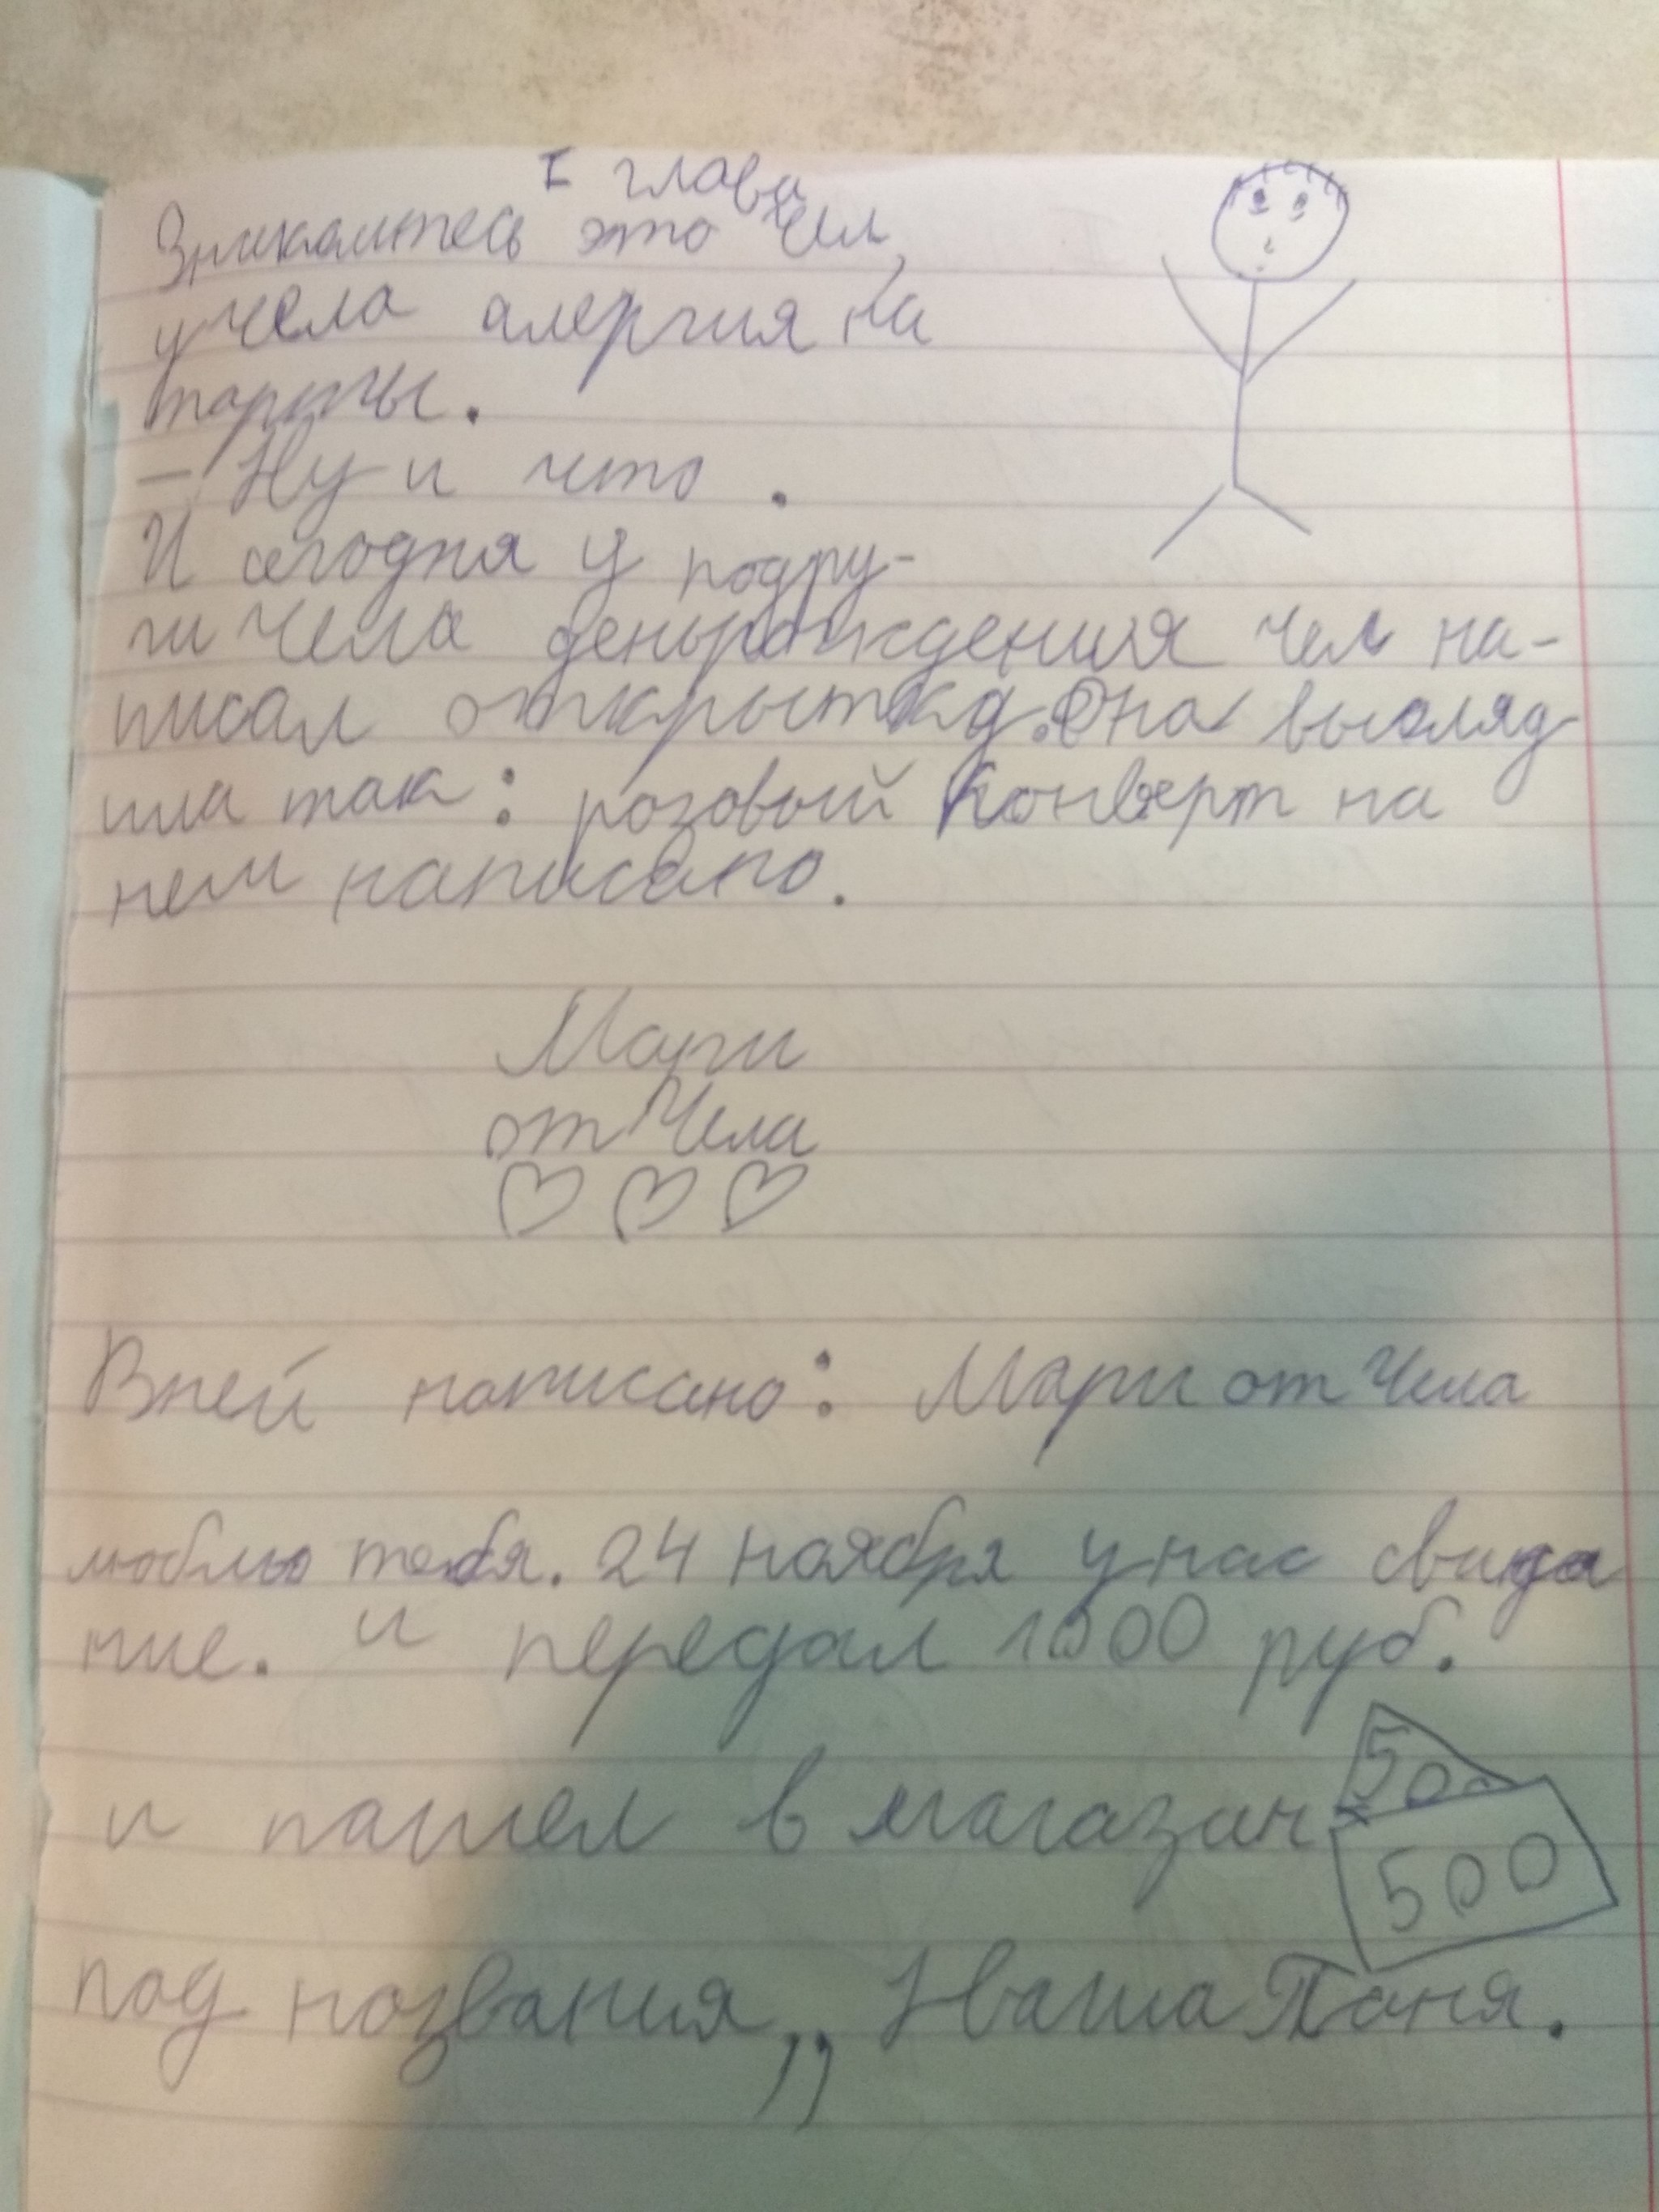 I глава
Знакомтесь это Чел,
у чела алергия на
торты.
– Ну и что.
И сегодня у подру-
ги Чела деньрождения чел на-
писал открытку. Она выгляд
ила так: розовый конверт на
нем написано.
Мари
от Чела
♡ ♡ ♡
Вней написано: Мари от Чела
люблю тебя. 24 ноября у нас свида
ние. и передал 1000 руб.
500
и пашел в магазин
500
под названия ,, Наша Таня.